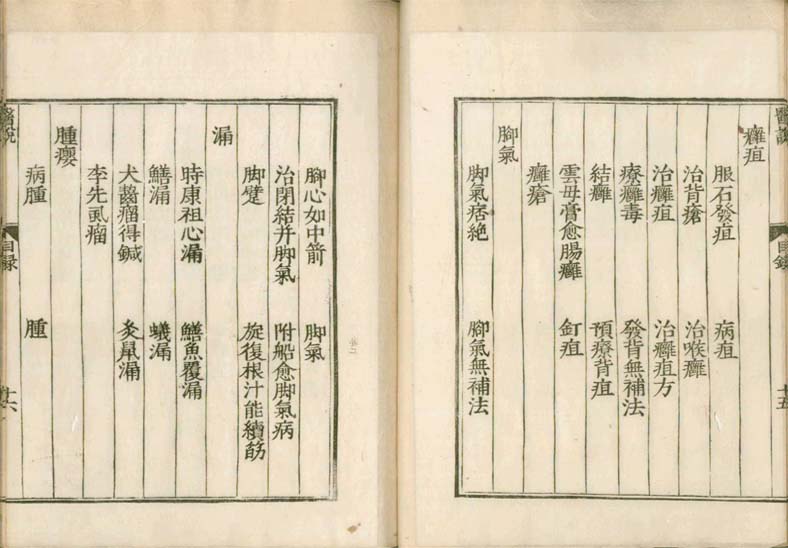 醫說
目錄
十五
癰疽
服石發疽 病疽
治背瘡 治喉癰
治癰疽 治癰疽方
療癰毒 發背無補法
結癰 預療背疽
雲母膏愈腸癰 釘疽
癰瘡
脚氣
脚氣痞絶 脚氣無補法
脚心如中箭 脚氣
治閉結并脚氣 附船愈脚氣病
脚躄 旋復根汁能續筋
漏
時康祖心漏 鱔魚覆漏
鱔漏 蟻漏
犬齧瘤得鍼 灸鼠漏
李先虱瘤
腫癭
病腫 腫
醫說
目録
十六